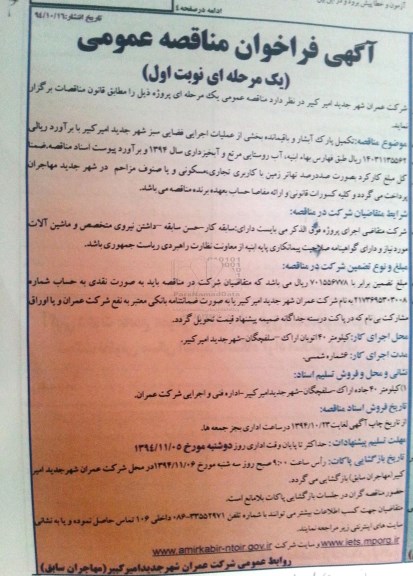 ادامه در صفحه ٤
تاریخ انتشار: ٩٤/١٠/١٦
آگهی فراخوان مناقصه عمومی
(یک مرحله ای نوبت اول)
شرکت عمران شهر جدید امیر کبیر در نظر دارد مناقصه عمومی یک مرحله ای پروژه ذیل را مطابق قانون مناقصات برگزار
نماید.
موضوع مناقصه: تکمیل پارک آبشار و باقیمانده بخشی از عملیات اجرایی فضایی سبز شهر جدید امیر کبیر با برآورد ریالی
١٤٠٣١١٣٥٥٦٢ ریال طبق فهارس بهاء ابنیه، آب روستایی مرتع و آبخیزداری سال ١٣٩٤ و برآورد پیوست اسناد مناقصه. ضمنا
کل مبلغ کارکرد بصورت صددرصد تهاتر زمین با کاربری تجاری، مسکونی و یا صنوف مزاحم در شهر جدید مهاجران
پرداخت می گردد و کلیه کسورات قانونی و ارائه مفاصا حساب بعهده برنده مناقصه می باشد.
شرایط متقاضیان شرکت در مناقصه:
شرکت متقاضی اجرای پروژه فوق الذکر می بایست دارای: سابقه کار-حسن سابقه -داشتن نیروی متخصص و ماشین آلات
مورد نیاز و دارای گواهینامه صلاحیت پیمانکاری پایه ابنیه از معاونت نظارت راهبردی ریاست جمهوری باشد.
مبلغ و نوع تضمین شرکت در مناقصه:
مبلغ تضمین برابر با ٧٠١٥٥٦٧٧٨ ریال می باشد که متقاضیان شرکت در مناقصه باید به صورت نقدی به حساب شماره
به نام شرکت عمران شهر جدید امیر کبیر یا به صورت ضمانتنامه بانکی معتبر به نفع شرکت عمران و یا اوراق
مشارکت بی نام که در پاکت دربسته جداگانه ضمیمه پیشنهاد قیمت تحویل گردد.
محل اجرای کار: کیلومتر ٤٠ اتوبان اراک -سلفچگان- شهر جدید امیر کبیر.
مدت اجرای کار: ٦ماه شمسی.
نشانی و محل و فروش تسلیم اسناد:
کیلومتر ٤٠ جاده اراک-سلفچگان-شهر جدید امیر کبیر -اداره فنی و اجرایی شرکت عمران.
تاریخ فروش اسناد مناقصه:
از تاریخ چاپ آگهی لغایت ١٣٩٤/١٠/٢٣ در ساعت اداری بجز جمعه ها.
مهلت تسلیم پیشنهادات : حداکثر تا پایان وقت اداری روز دوشنبه مورخ ١٣٩٤/١١/٠٥
تاریخ بازگشایی پاکات: رأس ساعت ٩:٠٠ صبح روز سه شنبه مورخ ١٣٩٤/١١/٠٦ در محل شرکت عمران شهر جدید امیر
کبیر(مهاجران سابق) بازگشایی می گردد.
حضور مناقصه گران در جلسات بازگشایی پاکات بلامانع است.
متقاضیان جهت کسب اطلاعات بیشتر می توانند با شماره تلفن ٣٣٥٥٢٩٧١-٠٨٦ داخلی ١٠٦ تماس حاصل نموده و یا به نشانی
سایت های اینترنتی زیر مراجعه نمایند.
www.iets.mporg.ir و سایت شرکت www.amirkabir-ntoir.gov.ir
روابط عمومی شرکت عمران شهر جدید امیر کبیر (مهاجران سابق)